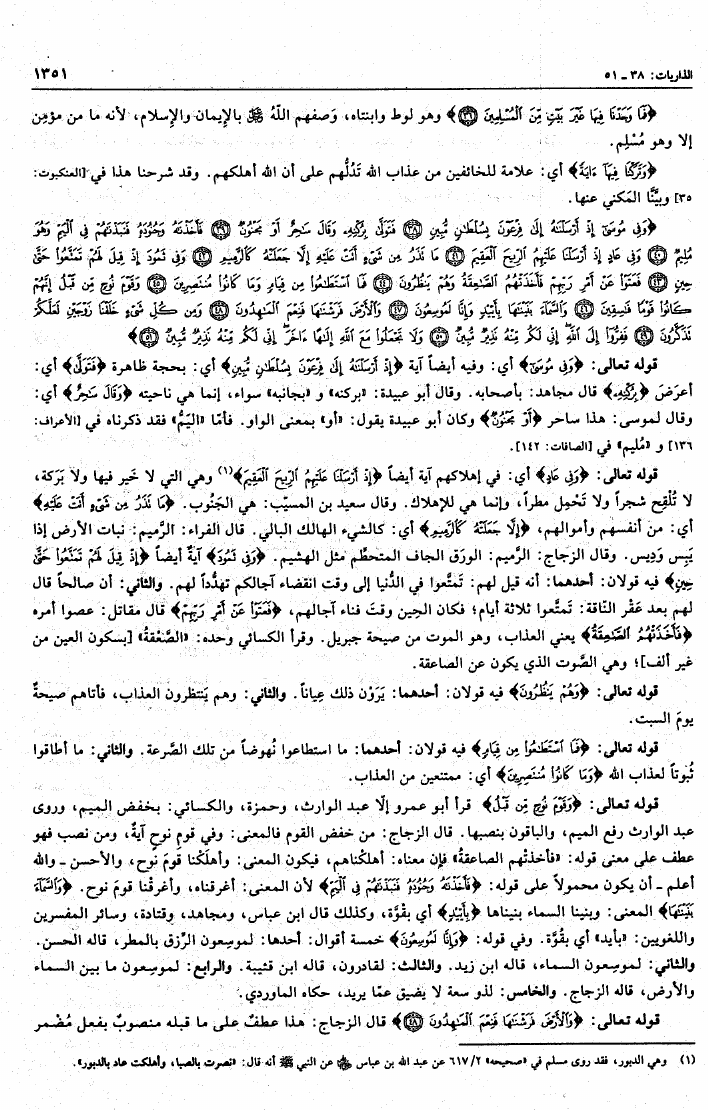 الذاريات: ٣٨ - ٥١
١٣٥١
﴿فَمَا وَجَدْنَا فِيهَا غَيْرَ بَيْتٍ مِّنَ الْمُسْلِمِينَ ﴿٣٦﴾﴾ وهو لوط وابنتاه، وَصفهم اللّهُ ﷻ بالإيمان والإسلام، لأنه ما من مؤمِن
إلا وهو مُسْلِم.
﴿وَتَرَكْنَا فِيهَا ءَايَةً﴾ أي: علامة للخائفين من عذاب الله تَدُلُّهم على أن الله أهلكهم. وقد شرحنا هذا في [العنكبوت:
٣٥] وبيَّنَّا المَكني عنها.
﴿وَفِي مُوسَىٰ إِذْ أَرْسَلْنَاهُ إِلَىٰ فِرْعَوْنَ بِسُلْطَانٍ مُّبِينٍ ﴿٣٨﴾ فَتَوَلَّىٰ بِرُكْنِهِ وَقَالَ سَاحِرٌ أَوْ مَجْنُونٌ ﴿٣٩﴾ فَأَخَذْنَاهُ وَجُنُودَهُ فَنَبَذْنَاهُمْ فِي الْيَمِّ وَهُوَ
مُلِيمٌ ﴿٤٠﴾ وَفِي عَادٍ إِذْ أَرْسَلْنَا عَلَيْهِمُ الرِّيحَ الْعَقِيمَ ﴿٤١﴾ مَا تَذَرُ مِن شَيْءٍ أَتَتْ عَلَيْهِ إِلَّا جَعَلَتْهُ كَالرَّمِيمِ ﴿٤٢﴾ وَفِي ثَمُودَ إِذْ قِيلَ لَهُمْ تَمَتَّعُوا حَتَّىٰ
حِينٍ ﴿٤٣﴾ فَعَتَوْا عَنْ أَمْرِ رَبِّهِمْ فَأَخَذَتْهُمُ الصَّاعِقَةُ وَهُمْ يَنظُرُونَ ﴿٤٤﴾ فَمَا اسْتَطَاعُوا مِن قِيَامٍ وَمَا كَانُوا مُنتَصِرِينَ ﴿٤٥﴾ وَقَوْمَ نُوحٍ مِّن قَبْلُ إِنَّهُمْ
كَانُوا قَوْمًا فَاسِقِينَ ﴿٤٦﴾ وَالسَّمَاءَ بَنَيْنَاهَا بِأَيْيدٍ وَإِنَّا لَمُوسِعُونَ ﴿٤٧﴾ وَالْأَرْضَ فَرَشْنَاهَا فَنِعْمَ الْمَاهِدُونَ ﴿٤٨﴾ وَمِن كُلِّ شَيْءٍ خَلَقْنَا زَوْجَيْنِ لَعَلَّكُمْ
تَذَكَّرُونَ ﴿٤٩﴾ فَفِرُّوا إِلَى اللَّهِ إِنِّي لَكُم مِّنْهُ نَذِيرٌ مُّبِينٌ ﴿٥٠﴾ وَلَا تَجْعَلُوا مَعَ اللَّهِ إِلَٰهًا ءَاخَرَ إِنِّي لَكُم مِّنْهُ نَذِيرٌ مُّبِينٌ ﴿٥١﴾﴾
قوله تعالى: ﴿وَفِي مُوسَىٰ﴾ أي: وفيه أيضاً آية ﴿إِذْ أَرْسَلْنَاهُ إِلَىٰ فِرْعَوْنَ بِسُلْطَانٍ مُّبِينٍ﴾ أي: بحجة ظاهرة ﴿فَتَوَلَّىٰ﴾ أي:
أعرَضَ ﴿بِرُكْنِهِ﴾ قال مجاهد: بأصحابه. وقال أبو عبيدة: «بركنه» و «بجانبه» سواء، إنما هي ناحيته ﴿وَقَالَ سَاحِرٌ﴾ أي:
وقال لموسى: هذا ساحر ﴿أَوْ مَجْنُونٌ﴾ وكان أبو عبيدة يقول: «أو» بمعنى الواو. فأمّا «اليَمُّ» فقد ذكرناه في [الأعراف:
١٣٦] و «مُليم» في [الصافات: ١٤٢].
قوله تعالى: ﴿وَفِي عَادٍ﴾ أي: في إهلاكهم آية أيضاً ﴿إِذْ أَرْسَلْنَا عَلَيْهِمُ الرِّيحَ الْعَقِيمَ﴾(١) وهي التي لا خَير فيها ولا بَرَكة،
لا تُلْقِح شجراً ولا تَحْمِل مطراً، وإنما هي للإهلاك. وقال سعيد بن المسيّب: هي الجَنُوب. ﴿مَا تَذَرُ مِن شَيْءٍ أَتَتْ عَلَيْهِ﴾
أي: من أنفسهم وأموالهم، ﴿إِلَّا جَعَلَتْهُ كَالرَّمِيمِ﴾ أي: كالشيء الهالك البالي. قال الفراء: الرَّميم: نبات الأرض إذا
يَبِس ودِيس. وقال الزجاج: الرَّميم: الورَق الجاف المتحطِّم مثل الهشيم. ﴿وَفِي ثَمُودَ﴾ آيةٌ أيضاً ﴿إِذْ قِيلَ لَهُمْ تَمَتَّعُوا حَتَّىٰ
حِينٍ﴾ فيه قولان: أحدهما: أنه قيل لهم: تَمتَّعوا في الدُّنيا إلى وقت انقضاء آجالكم تهدُّداً لهم. والثاني: أن صالحاً قال
لهم بعد عَقْر النّاقة: تَمتَّعوا ثلاثة أيام؛ فكان الحِين وقتَ فناء آجالهم، ﴿فَعَتَوْا عَنْ أَمْرِ رَبِّهِمْ﴾ قال مقاتل: عصوا أمره
﴿فَأَخَذَتْهُمُ الصَّاعِقَةُ﴾ يعني العذاب، وهو الموت من صيحة جبريل. وقرأ الكسائي وحده: «الصَّعْقةُ» [بسكون العين من
غير ألف]؛ وهي الصَّوت الذي يكون عن الصاعقة.
قوله تعالى: ﴿وَهُمْ يَنظُرُونَ﴾ فيه قولان: أحدهما: يَرَوْن ذلك عِياناً. والثاني: وهم يَنتظرون العذاب، فأتاهم صيحةٌ
يومَ السبت.
قوله تعالى: ﴿فَمَا اسْتَطَاعُوا مِن قِيَامٍ﴾ فيه قولان: أحدهما: ما استطاعوا نُهوضاً من تلك الصَّرعة. والثاني: ما أطاقوا
ثُبوتاً لعذاب الله ﴿وَمَا كَانُوا مُنتَصِرِينَ﴾ أي: ممتنعين من العذاب.
قوله تعالى: ﴿وَقَوْمَ نُوحٍ مِّن قَبْلُ﴾ قرأ أبو عمرو إلّا عبد الوارث، وحمزة، والكسائي: بخفض الميم، وروى
عبد الوارث رفع الميم، والباقون بنصبها. قال الزجاج: من خفض القوم فالمعنى: وفي قوم نوح آيةٌ، ومن نصب فهو
عطف على معنى قوله: «فأخذتْهم الصاعقةُ» فإن معناه: أهلكْناهم، فيكون المعنى: وأهلَكْنا قومَ نوح، والأحسن - والله
أعلم - أن يكون محمولاً على قوله: ﴿فَأَخَذْنَاهُ وَجُنُودَهُ فَنَبَذْنَاهُمْ فِي الْيَمِّ﴾ لأن المعنى: أغرقناه، وأغرقْنا قومَ نوح. ﴿وَالسَّمَاءَ
بَنَيْنَاهَا﴾ المعنى: وبنينا السماء بنيناها ﴿بِأَيْيدٍ﴾ أي بقوَّة، وكذلك قال ابن عباس، ومجاهد، وقتادة، وسائر المفسرين
واللغويين: «بأيد» أي بقُوَّة. وفي قوله: ﴿وَإِنَّا لَمُوسِعُونَ﴾ خمسة أقوال: أحدها: لموسِعون الرِّزق بالمطر، قاله الحسن.
والثاني: لموسِعون السماء، قاله ابن زيد. والثالث: لقادرون، قاله ابن قتيبة. والرابع: لموسِعون ما بين السماء
والأرض، قاله الزجاج. والخامس: لذو سعة لا يضيق عمّا يريد، حكاه الماوردي.
قوله تعالى: ﴿وَالْأَرْضَ فَرَشْنَاهَا فَنِعْمَ الْمَاهِدُونَ ﴿٤٨﴾﴾ قال الزجاج: هذا عطفٌ على ما قبله منصوبٌ بفعل مُضْمر
(١) وهي الدبور، فقد روى مسلم في «صحيحه» ٦١٧/٢ عن عبد الله بن عباس ﷺ عن النبي ﷺ أنه قال: «نصرت بالصبا، وأهلكت عاد بالدبور».